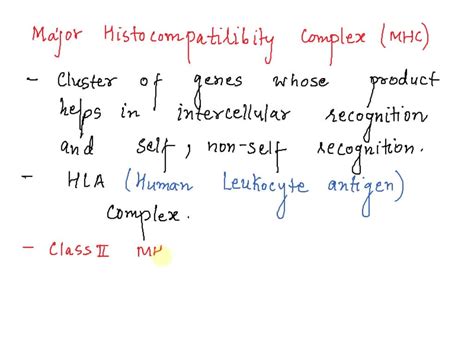 Major Histocompatilibity Complex (MHC)
- Cluster of genes whose product
helps in intercellular recognition
and self, non-self recognition.
- HLA (Human Leukocyte antigen)
Complex.
- Class II MH